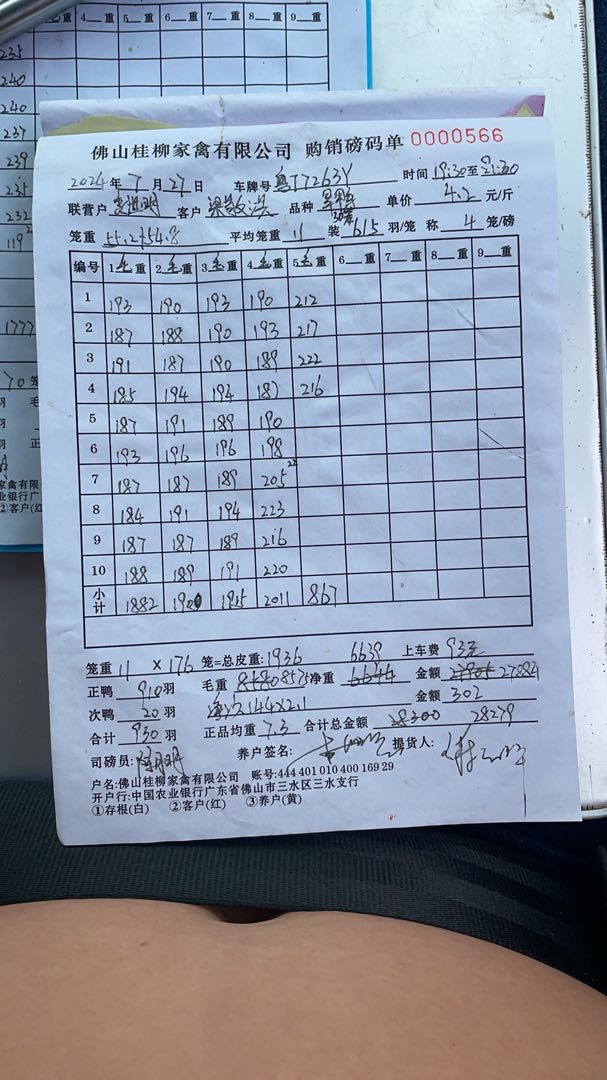 4 重 5 重 6 重 7 重 8 重 9 重
235
240
240
237
239
235
232
119²
1777
70 笼
佛山桂柳家禽有限公司 购销磅码单 0000566
2024年 7 月 27 日 车牌号 粤T7263Y 时间 19:30至21:30
联营户 客户 品种 单价 4.2 元/斤
笼重 55.2+54.8 平均笼重 11 装 6.5 羽/笼 称 4 笼/磅
编号 1毛重 2毛重 3毛重 4毛重 5毛重 6 重 7 重 8 重 9 重
1 193 190 193 190 212
2 187 188 190 193 217
3 191 187 190 189 222
4 185 194 194 187 216
5 187 191 189 190
6 193 196 196 198
7 187 187 189 205 22
8 184 191 194 223
9 187 187 189 216
10 188 189 191 220
小计 1882 1900 1915 2011 867
笼重 11 × 176 笼=总皮重: 1936 6639 上车费 93元
正鸭 910 羽 毛重 8580 8575 净重 6644 金额 27905 27884
次鸭 20 羽 144×2.1 金额 302
合计 930 羽 正品均重 7.3 合计总金额 28300 28279
司磅员: 养户签名: 提货人:
户名:佛山桂柳家禽有限公司 账号:444 401 010 400 169 29
开户行:中国农业银行广东省佛山市三水区三水支行
①存根(白) ②客户(红) ③养户(黄)